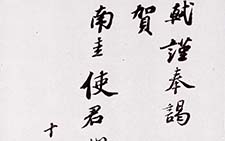 軾謹奉謁
賀
南圭使君
十